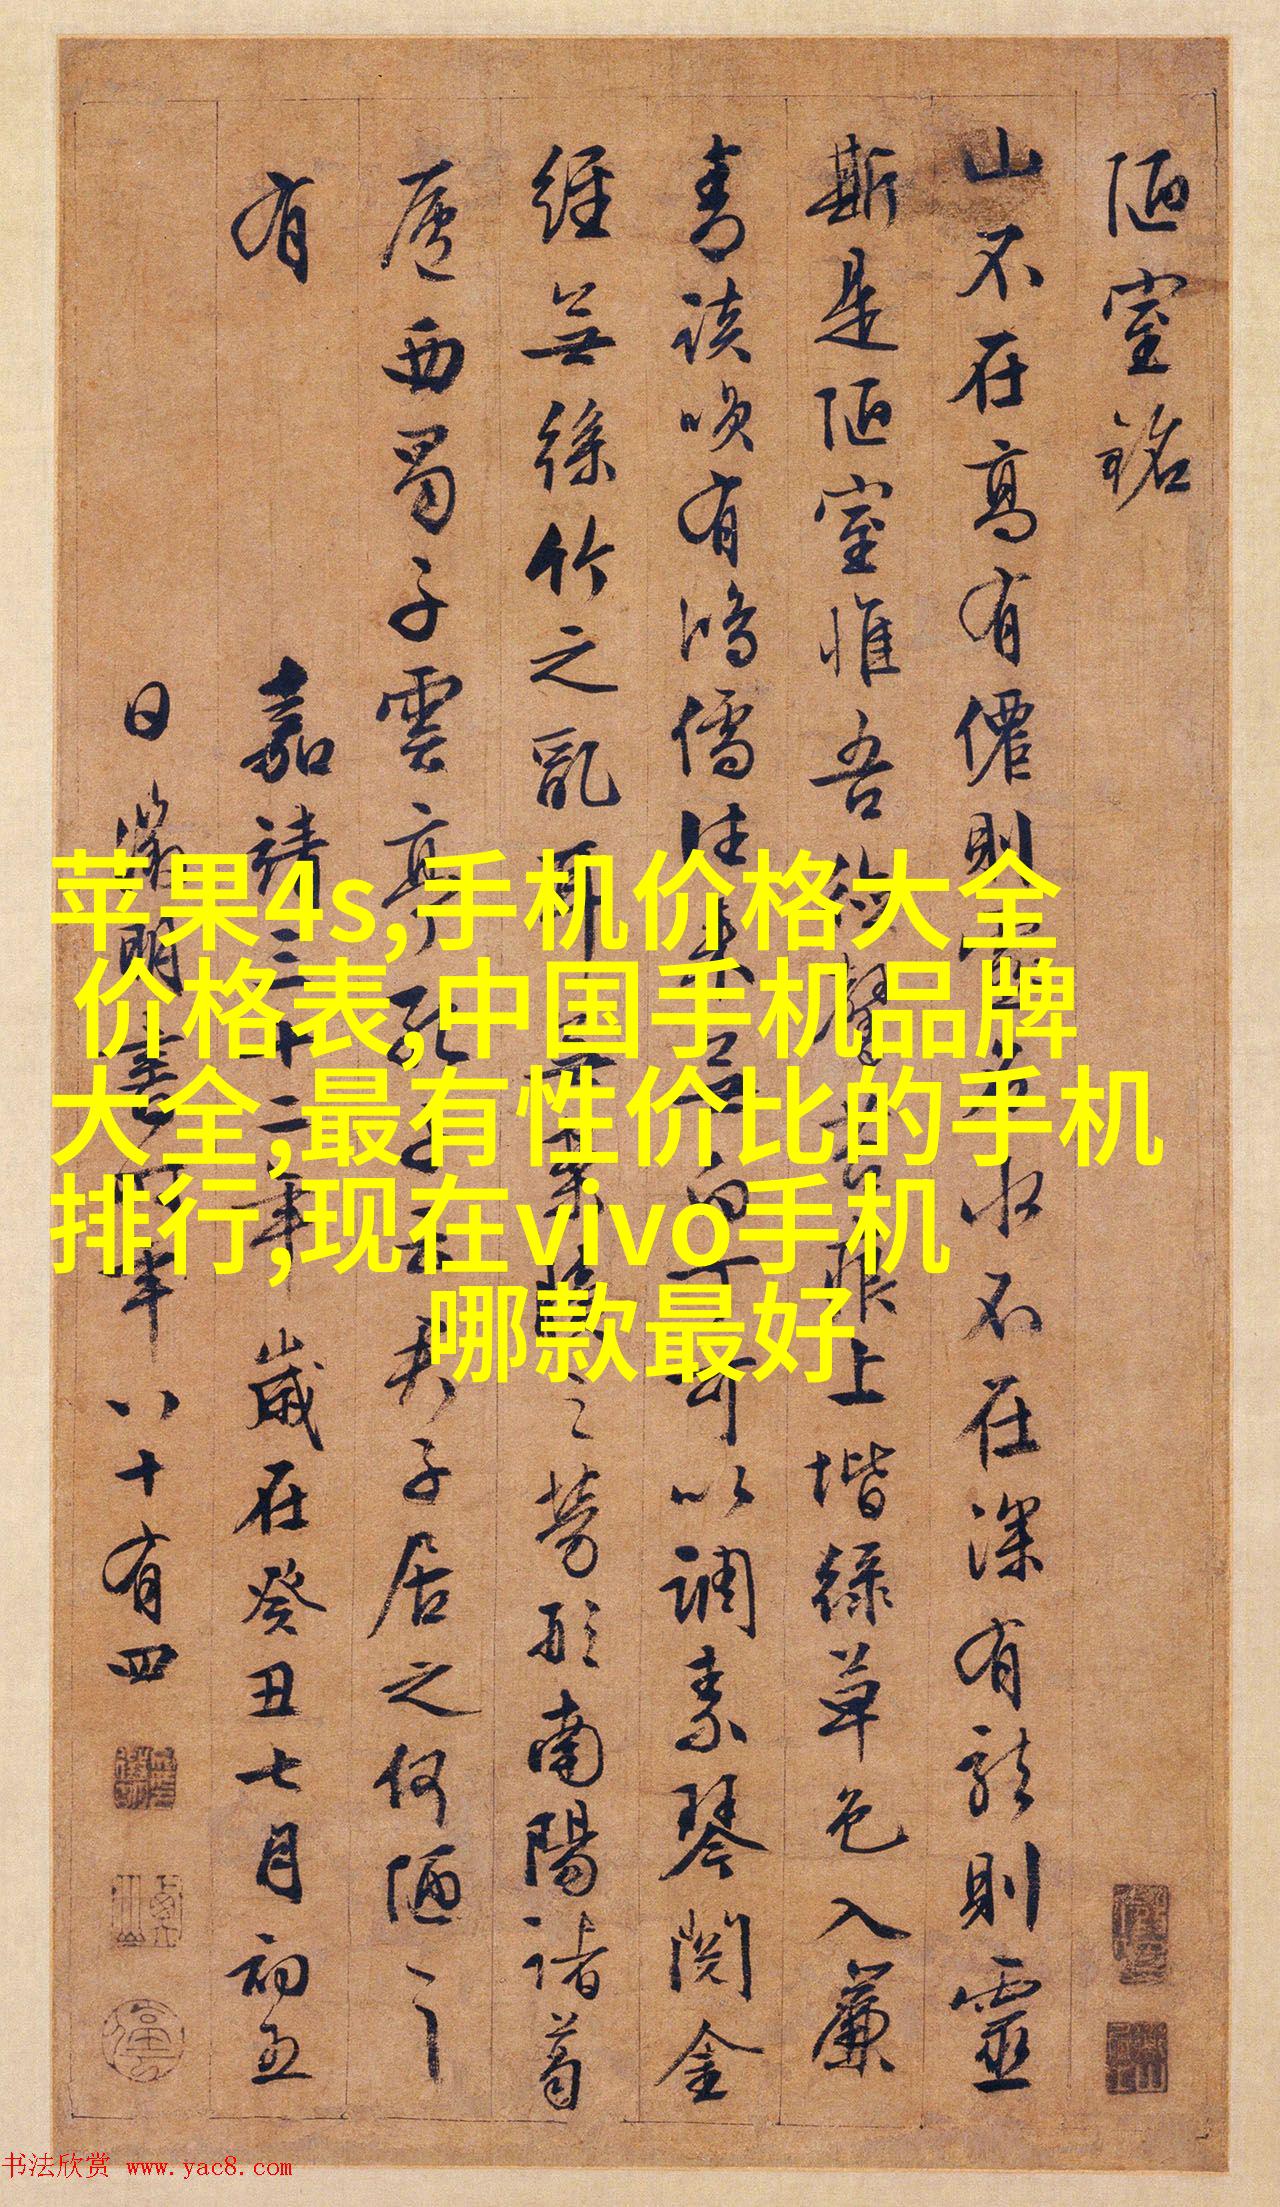 陋室銘
山不在高有僊則水不在深有龍則靈
斯是陋室惟吾德馨苔痕上堦綠草色入簾
青談咲有鴻儒往來白丁可以調素琴閱金
經無絲竹之亂耳無案牘之勞形南陽諸葛
廬西蜀子雲亭孔子云君子居之何陋之
有
嘉靖三十二年歲在癸丑七月初五
日徵明書時年八十有四
苹果4s,手机价格大全
价格表,中国手机品牌
大全,最有性价比的手机
排行,现在vivo手机
哪款最好
书法欣赏 www.yac8.com